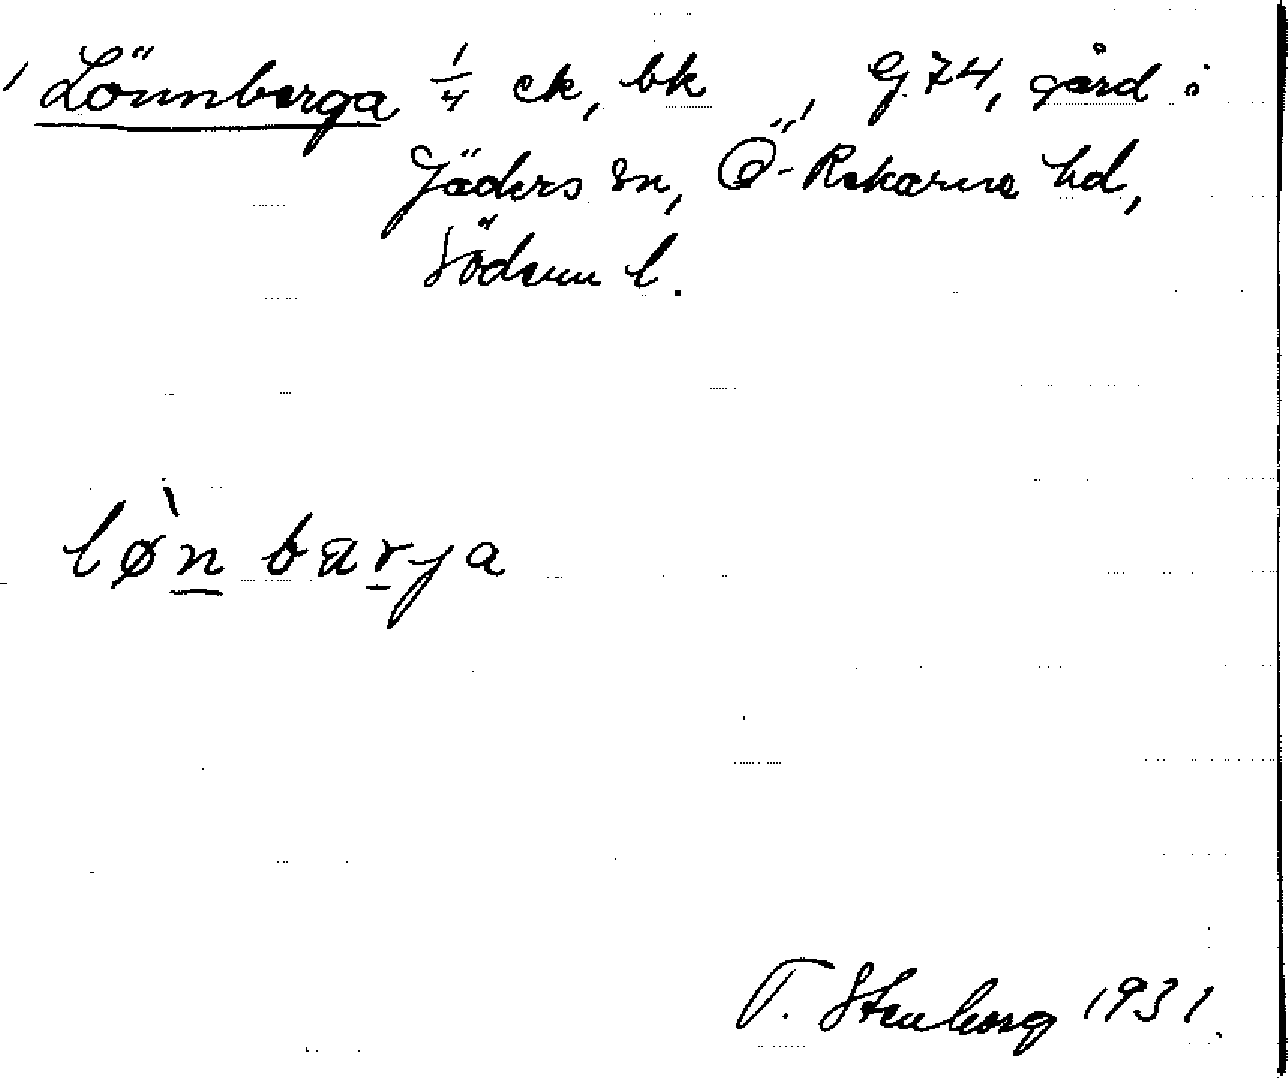 Lönnberga 1/4 ek, bk, G. 74, gård i
Jäders sn, Ö-Rekarne hd,
Söderm l.
lø̀n bärja
T. Stenborg 1931.